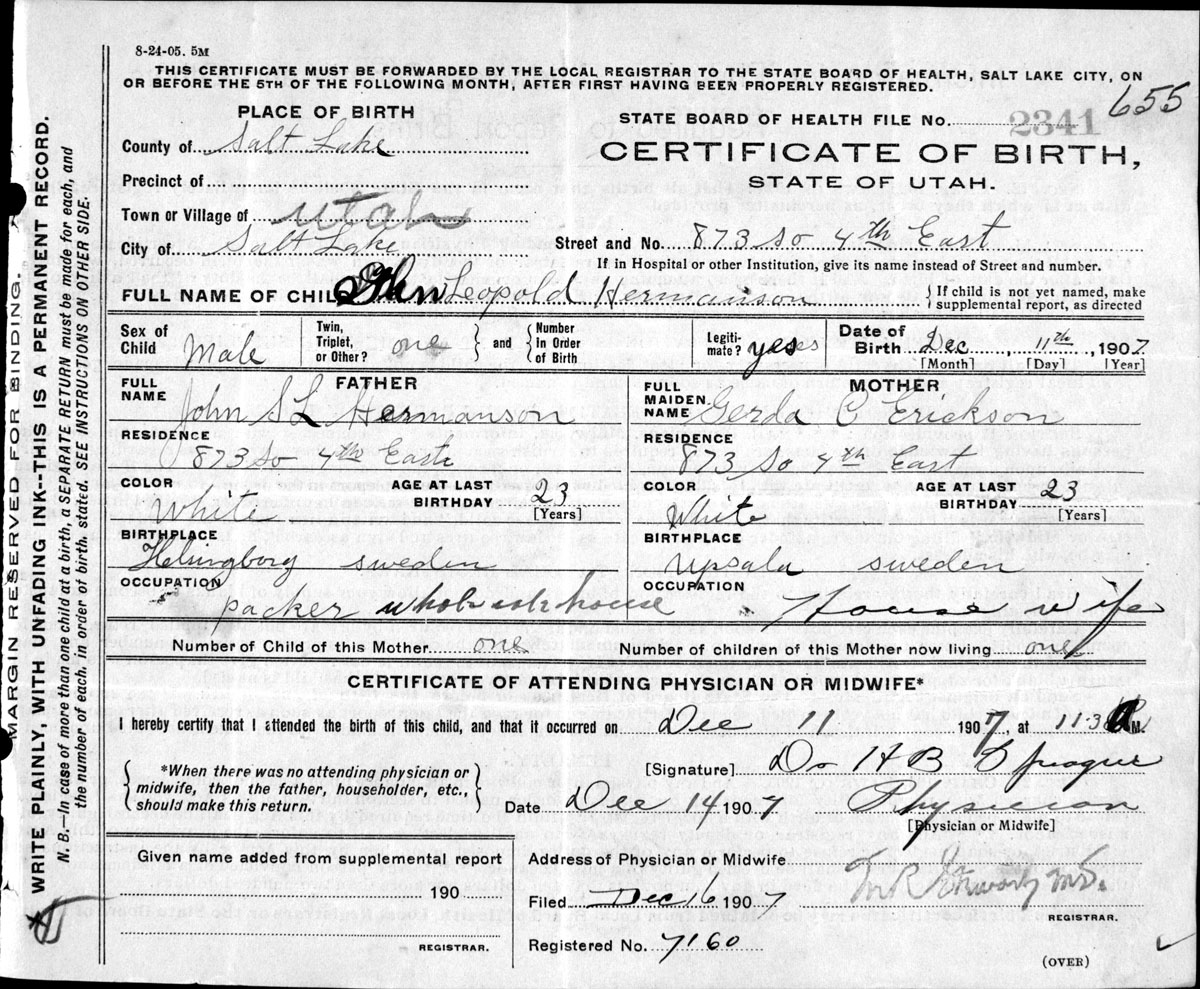 8-24-05. 5M
THIS CERTIFICATE MUST BE FORWARDED BY THE LOCAL REGISTRAR TO THE STATE BOARD OF HEALTH, SALT LAKE CITY, ON
OR BEFORE THE 5TH OF THE FOLLOWING MONTH, AFTER FIRST HAVING BEEN PROPERLY REGISTERED.
655
PLACE OF BIRTH
STATE BOARD OF HEALTH FILE No. 2341
County of Salt Lake
CERTIFICATE OF BIRTH,
Precinct of
STATE OF UTAH.
Town or Village of Utah
City of Salt Lake
Street and No. 873 So 4th East
If in Hospital or other Institution, give its name instead of Street and number.
FULL NAME OF CHILD John Leopold Hermanson
If child is not yet named, make
supplemental report, as directed
Sex of Child Male
Twin, Triplet, or Other? one and Number in Order of Birth
Legiti-mate? yes
Date of Birth Dec 11th 1907
[Month] [Day] [Year]
FATHER
FULL NAME John S L Hermanson
MOTHER
FULL MAIDEN NAME Gerda C Erickson
RESIDENCE
873 So 4th East
RESIDENCE
873 So 4th East
COLOR White
AGE AT LAST BIRTHDAY 23
[Years]
COLOR White
AGE AT LAST BIRTHDAY 23
[Years]
BIRTHPLACE
Helsingborg sweden
BIRTHPLACE
Upsala sweden
OCCUPATION
packer house
OCCUPATION
House wife
Number of Child of this Mother one
Number of children of this Mother now living one
CERTIFICATE OF ATTENDING PHYSICIAN OR MIDWIFE*
I hereby certify that I attended the birth of this child, and that it occurred on Dec 11 1907, at 11-30 A M.
*When there was no attending physician or
midwife, then the father, householder, etc.,
should make this return.
[Signature] Dr H B Sprague
Date Dec 14 1907 Physician
[Physician or Midwife]
Given name added from supplemental report
190
REGISTRAR.
Address of Physician or Midwife
Filed Dec 16 1907
REGISTRAR.
Registered No. 7160
(OVER)
MARGIN RESERVED FOR BINDING.
WRITE PLAINLY, WITH UNFADING INK--THIS IS A PERMANENT RECORD.
N. B.—In case of more than one child at a birth, a SEPARATE RETURN must be made for each, and
the number of each, in order of birth, stated. SEE INSTRUCTIONS ON OTHER SIDE.